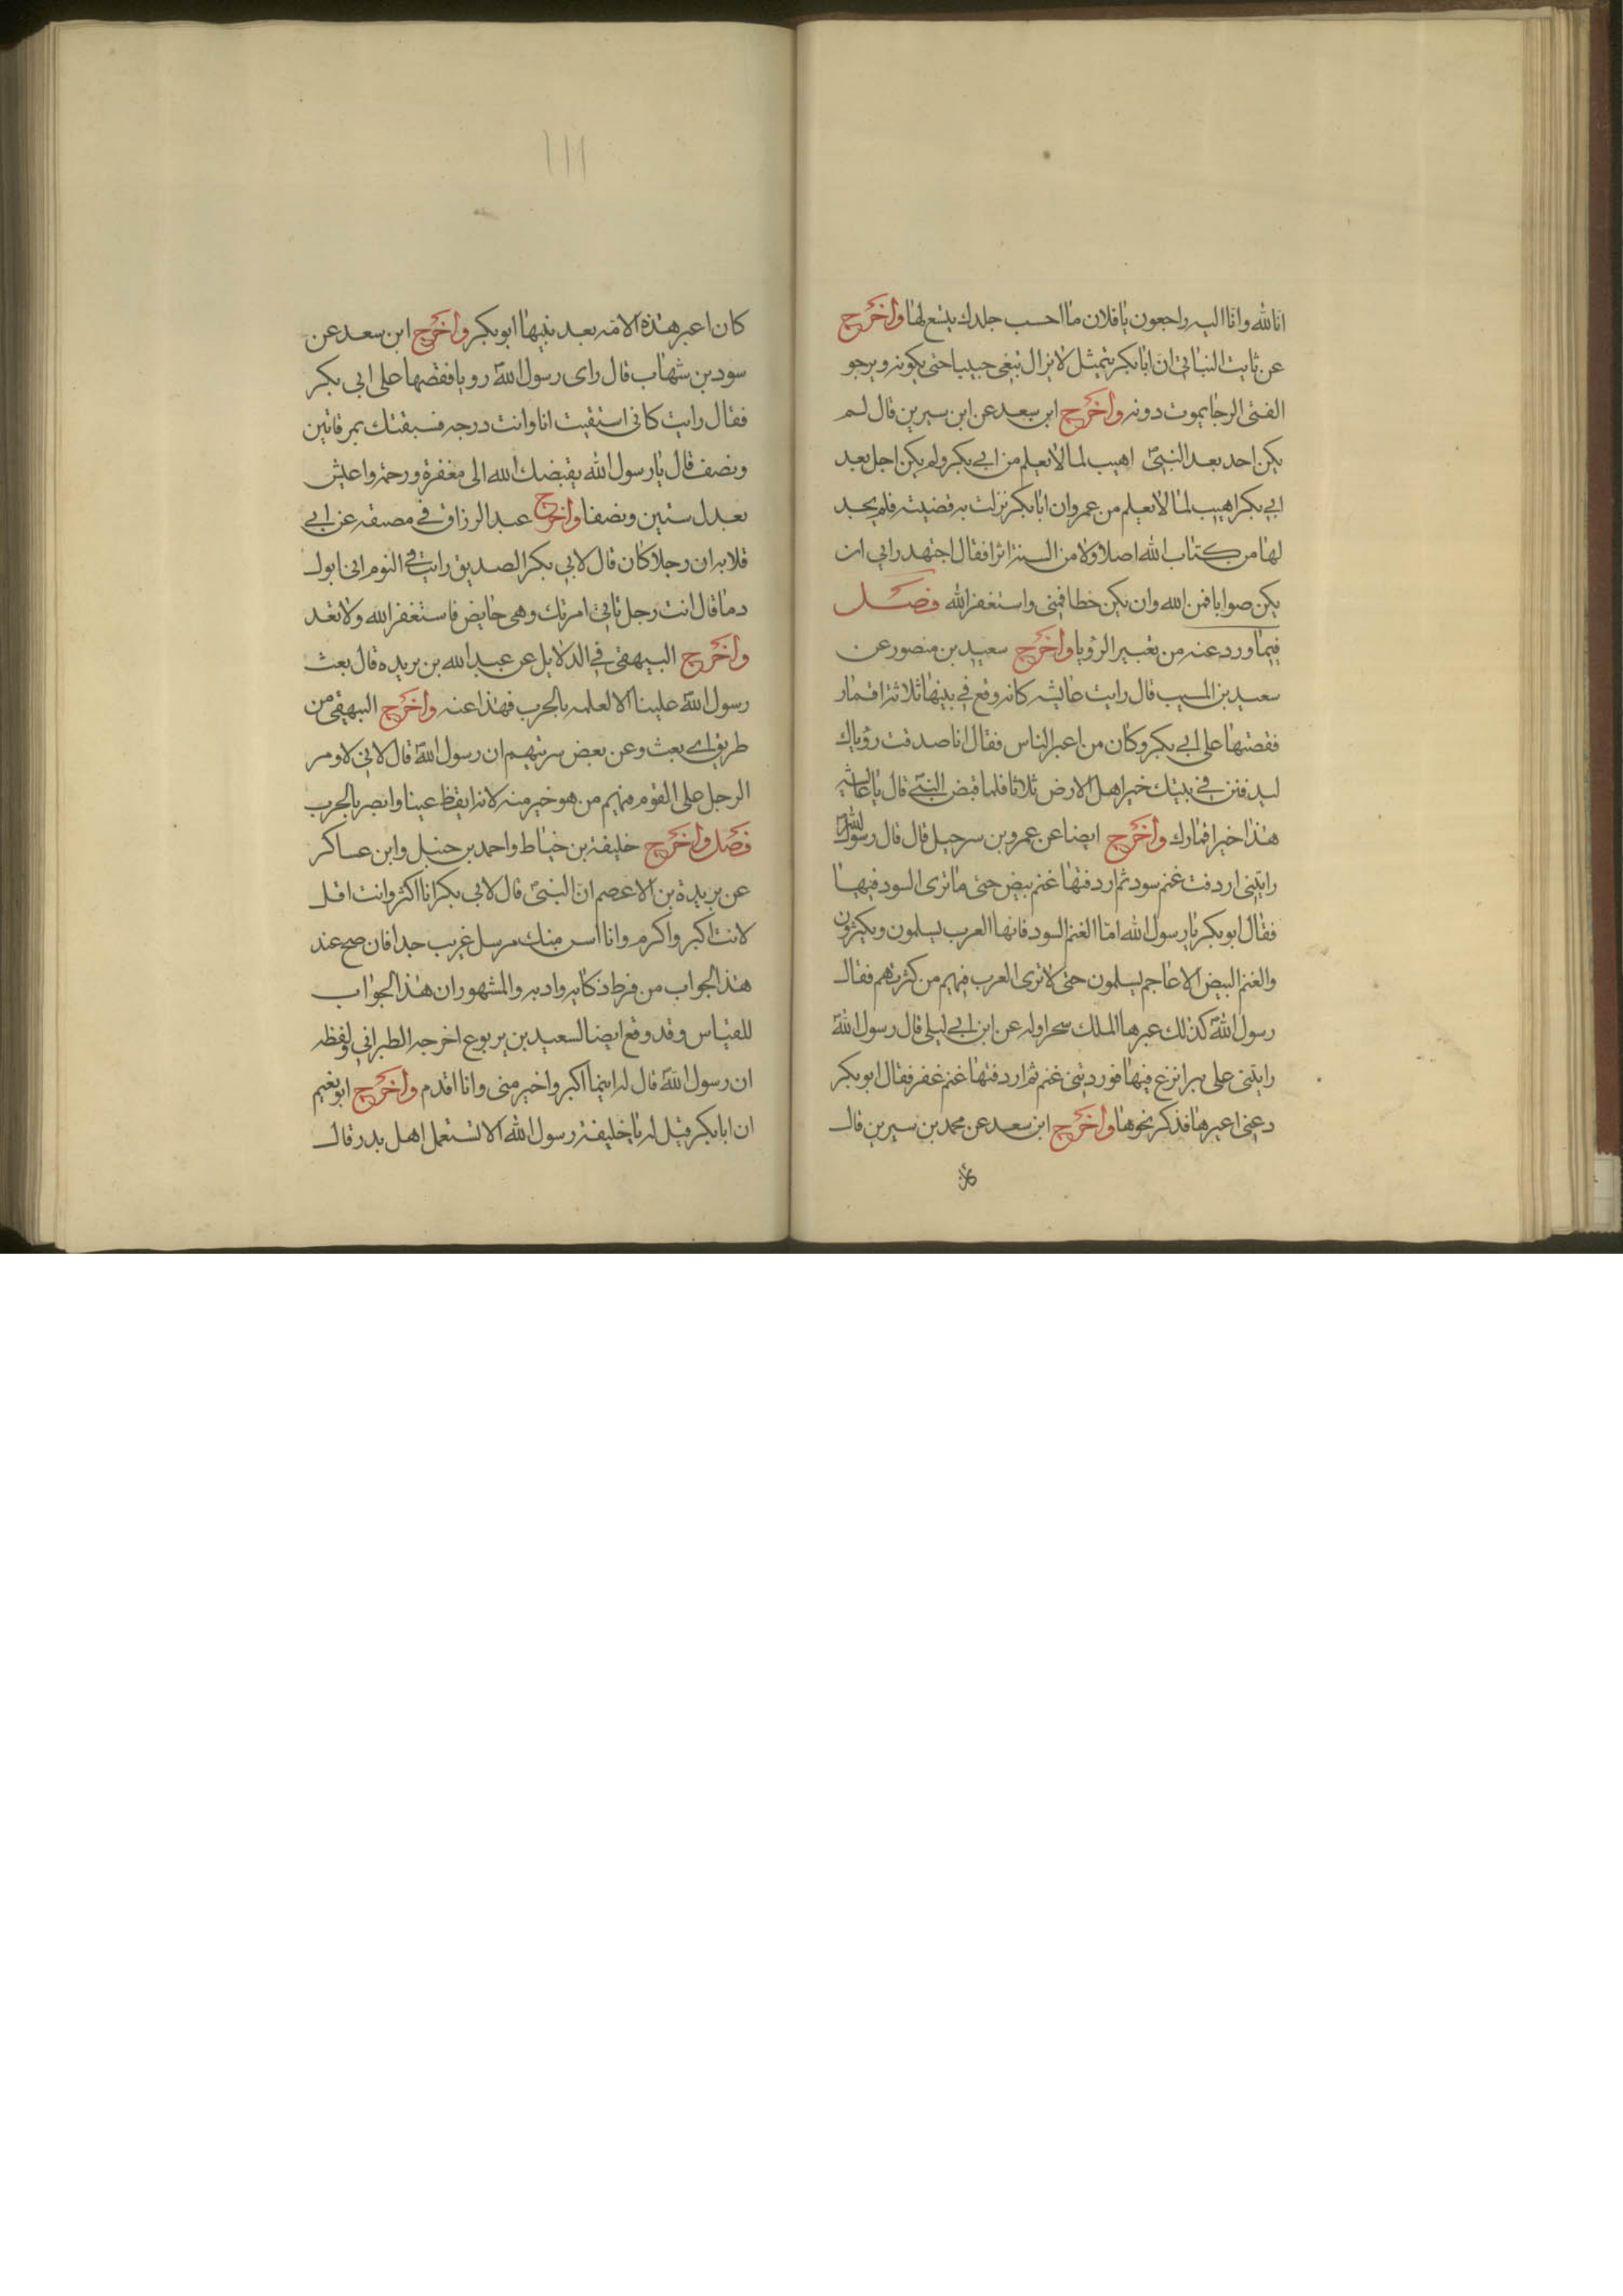 انا لله وانا اليه راجعون يا فلان ما احسب جلدك يتسع لها واخرج
عن ثابت البناني ان ابا بكر يتمثل لا يزال تبغي حبيبا حتى يكونه ويرجو
الفتى الرجا يموت دونه واخرج ابن سعد عن ابن سيرين قال لم
يكن احد بعد النبيّ اهيب لما لا يعلم من ابي بكر ولم يكن اجل بعد
ابي بكر اهيب لما لا يعلم من عمر وان ابا بكر نزلت به قضيته فلم يجد
لها من كتاب الله اصلا ولا من السنة اثرا فقال اجتهد رايي ان
يكن صوابا فمن الله وان يكن خطا فمني واستغفر الله فصل
فيما ورد عنه من تعبير الرؤيا واخرج سعيد بن منصور عن
سعيد بن المسيب قال رايت عايشه كانه وقع في بيتها ثلاثة اقمار
فقصتها على ابي بكر وكان من اعبر الناس فقال انا صدقت رؤياك
ليدفنن في بيتك خير اهل الارض ثلاثا فلما قبض النبيّ قال يا عايشه
هذا خير اقمارك واخرج ايضا عن عمرو بن سرحبيل قال قال رسول اللهّ
رايتني اردفت غنم سود ثم اردفتها غنم بيض حتى ما ترى السود فيها
فقال ابو بكر يا رسول الله اما الغنم السود فانها العرب يسلمون ويكثرون
والغنم البيض الاعاجم يسلمون حتى لا ترى العرب فيهم من كثرتهم فقال
رسول اللهّ كذلك عبرها الملك سحرا وله عن ابن ابي ليلى قال رسول اللهّ
رايتني على بير انزع فيها فوردتني غنم ثم اردفتها غنم غفر فقال ابو بكر
دعني اعبرها فذكر نحوها واخرج ابن سعد عن محمد بن سيرين قال
كان
١١١
كان اعبر هذه الامة بعد نبيها ابو بكر واخرج ابن سعد عن
سود بن شهاب قال راى رسول اللهّ رويا فقصها على ابي بكر
فقال رايت كاني استقيت انا وانت درجه فسبقتك بمرقاتين
ونصف قال يا رسول الله يقبضك الله الى مغفرة ورحمة واعيش
بعدل ستين ونصفا واخرج عبد الرزاق في مصنفه عن ابي
قلابه ان رجلا كان قال لابي بكر الصديق رايت في النوم اني ابول
دما قال انت رجل تاتي امرتك وهي حايض فاستغفر الله ولا تعد
واخرج البيهقي في الدلايل عن عبد الله بن بريده قال بعث
رسول اللهّ علينا الا لعلمه بالحرب فهذا عنه واخرج البيهقي من
طريق اي بعث وعن بعض سرتيهم ان رسول اللهّ قال لاني لاومر
الرجل على القوم فيهم من هو خير منه لانه ايقظ عينا وابصر بالحرب
فصل واخرج خليفة بن خياط واحمد بن حنبل وابن عساكر
عن بريدة بن الاعصم ان النبيّ قال لابي بكر انا اكثر وانت اقل
لانت اكبر واكرم وانا اسن منك مرسل غريب جدا فان صح عند
هذا الجواب من فرط ذكايه وادبه والمشهور ان هذا الجواب
للقياس وقد وقع ايضا لسعيد بن يربوع اخرجه الطبراني ولفظه
ان رسول اللهّ قال له اينما اكبر واخير مني وانا اقدم واخرج ابو نعيم
ان ابا بكر قيل له يا خليفة رسول الله الا تستعمل اهل بدر قال